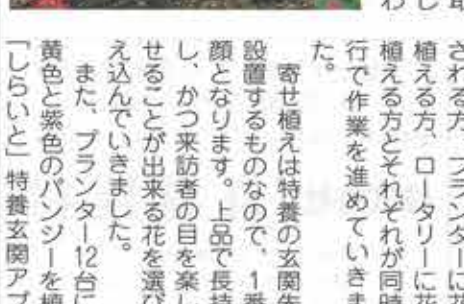 される方、プランターにお
植える方、ロータリーに花
植える方とそれぞれが同時
行で作業を進めていきま
た。
寄せ植えは特養の玄関先
設置するものなので、1番
顔となります。上品で長持
し、かつ来訪者の目を楽し
せることが出来る花を選び
え込んでいきました。
また、プランター12台に
黄色と紫色のパンジーを植
「しらいと」特養玄関アプ